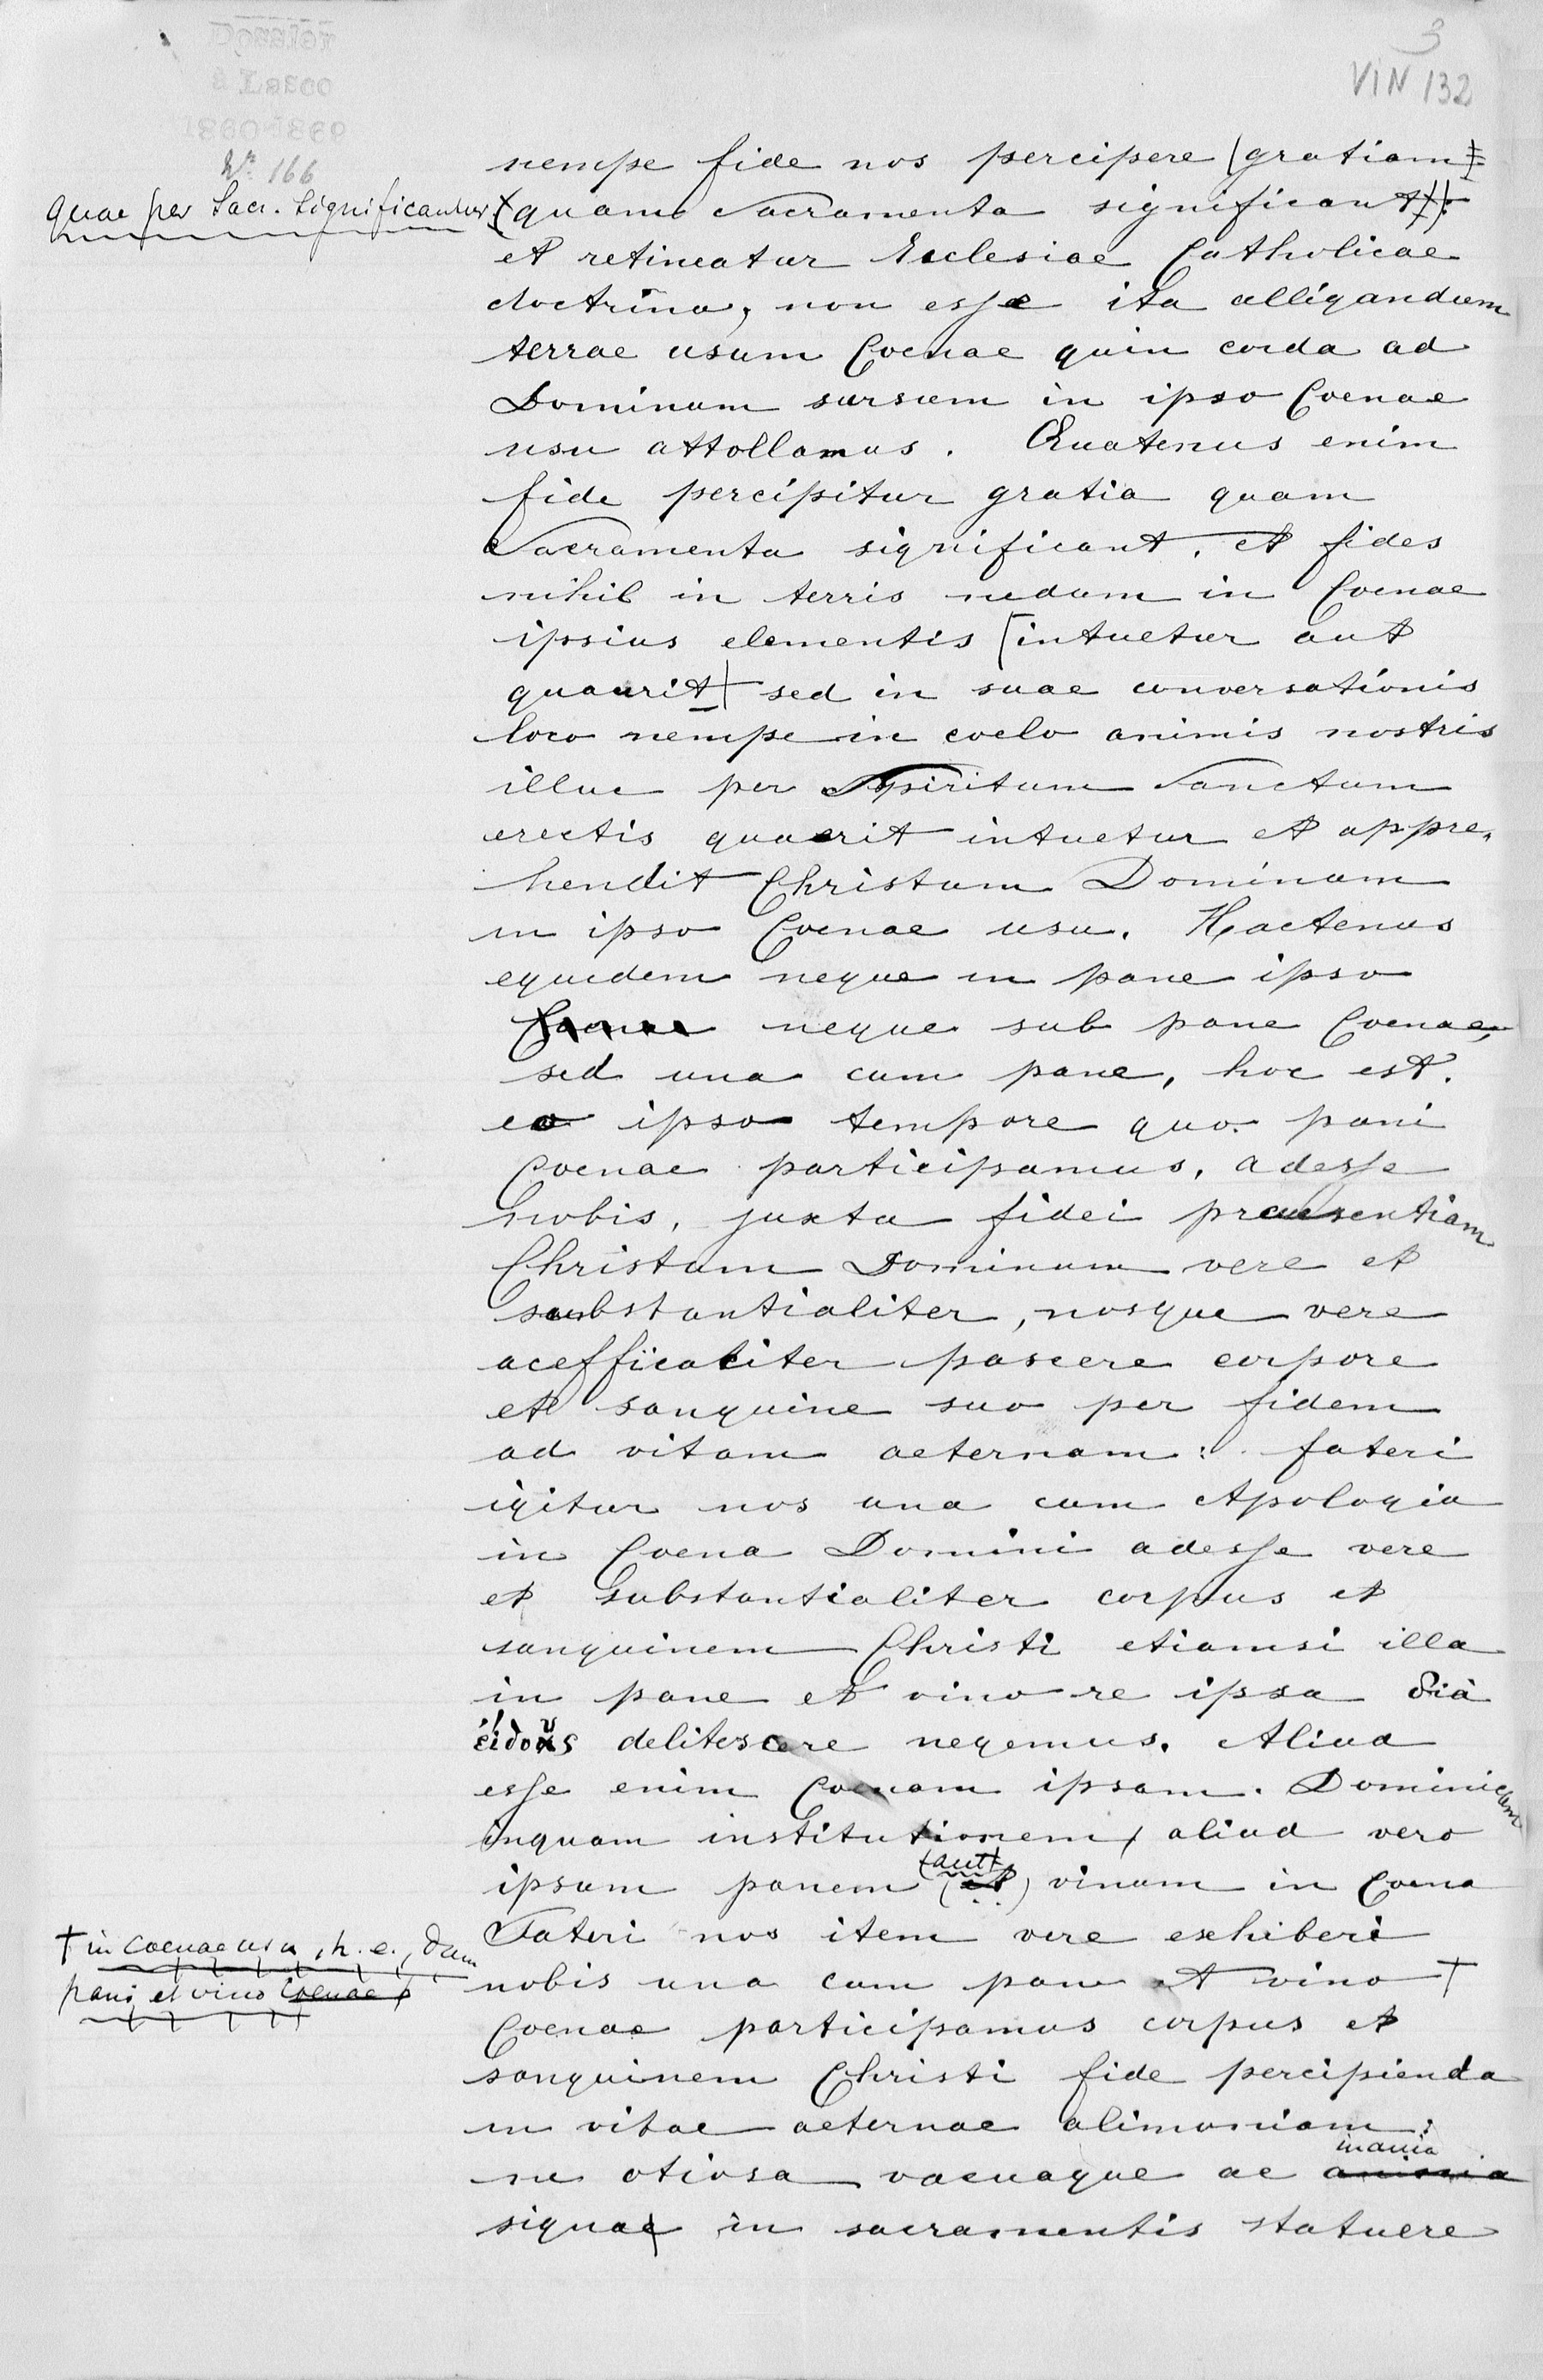 3
VIN 132
Nº 166
nempe fide nos percipere (gratiam ‡
quae per Sacr. significantur (quam Sacramenta significant)).
et retineatur Ecclesiae Catholicae
doctrina, non esse ita alligandum
terrae usum Coenae quin corda ad
Dominum sursum in ipso Coenae
usu attollamus. Quatenus enim
fide percipitur gratia quam
Sacramenta significant, et fides
nihil in terris nedum in Coenae
ipsius elementis (intuetur aut
quaerit) sed in suae conversationis
loco nempe in coelo animis nostris
illuc per Spiritum Sanctum
erectis quaerit intuetur et appre,
hendit Christum Dominum
in ipso Coenae usu. Hactenus
equidem neque in pane ipso
Coenae neque sub pane Coenae,
sed una cum pane, hoc est.
eo ipso tempore quo pani
Coenae participamus, adesse
nobis, juxta fidei praesentiam
Christum Dominum vere et
substantialiter, nosque vere
ac efficaciter pascere corpore
et sanguine suo per fidem
ad vitam aeternam: fateri
igitur nos una cum Apologia
in Coena Domini adesse vere
et substantialiter corpus et
sanguinem Christi etiamsi illa
in pane et vino re ipsa διὰ
εἴδους delitescere negemus. Aliud
esse enim Coenam ipsam. Dominicam
inquam institutionem, aliud vero
ipsum panem (et) (aut) vinum in Coena
Fateri nos item vere exhiberi
nobis una cum pane et vino †
† in Coenae usu, h. e., dum
pani et vino Coenae
Coenae participamus corpus et
sanguinem Christi fide percipienda
in vitae aeternae alimoniam:
ne otiosa vacuaque ac inania
signa in sacramentis statuere